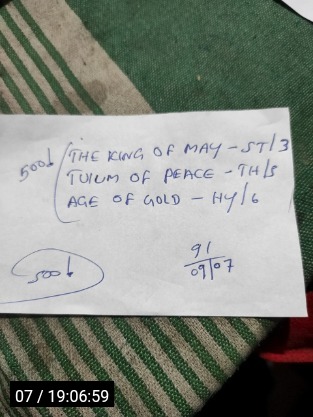 500/ THE KING OF MAY - ST/3
OF PEACE - TH/5
AGE OF GOLD - HY/6
500/
91
09/07
07 / 19:06:59